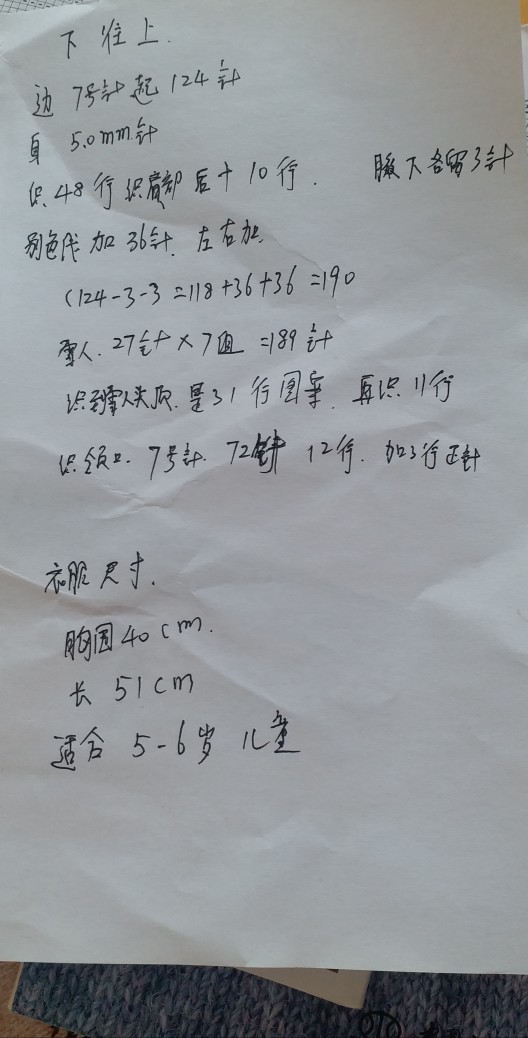 下往上.
边 7号针起124针
身 5.0mm针
织48行织肩部后+10行. 腋下各留3针
别色线加36针.左右加.
(124-3-3=118+36+36=190
雪人.27针×7组=189针
织到雪人头顶.是31行图案.再织11行
织领口.7号针.72针 12行.加3行正针
衣服尺寸.
胸围40cm.
长 51cm
适合 5-6岁 儿童